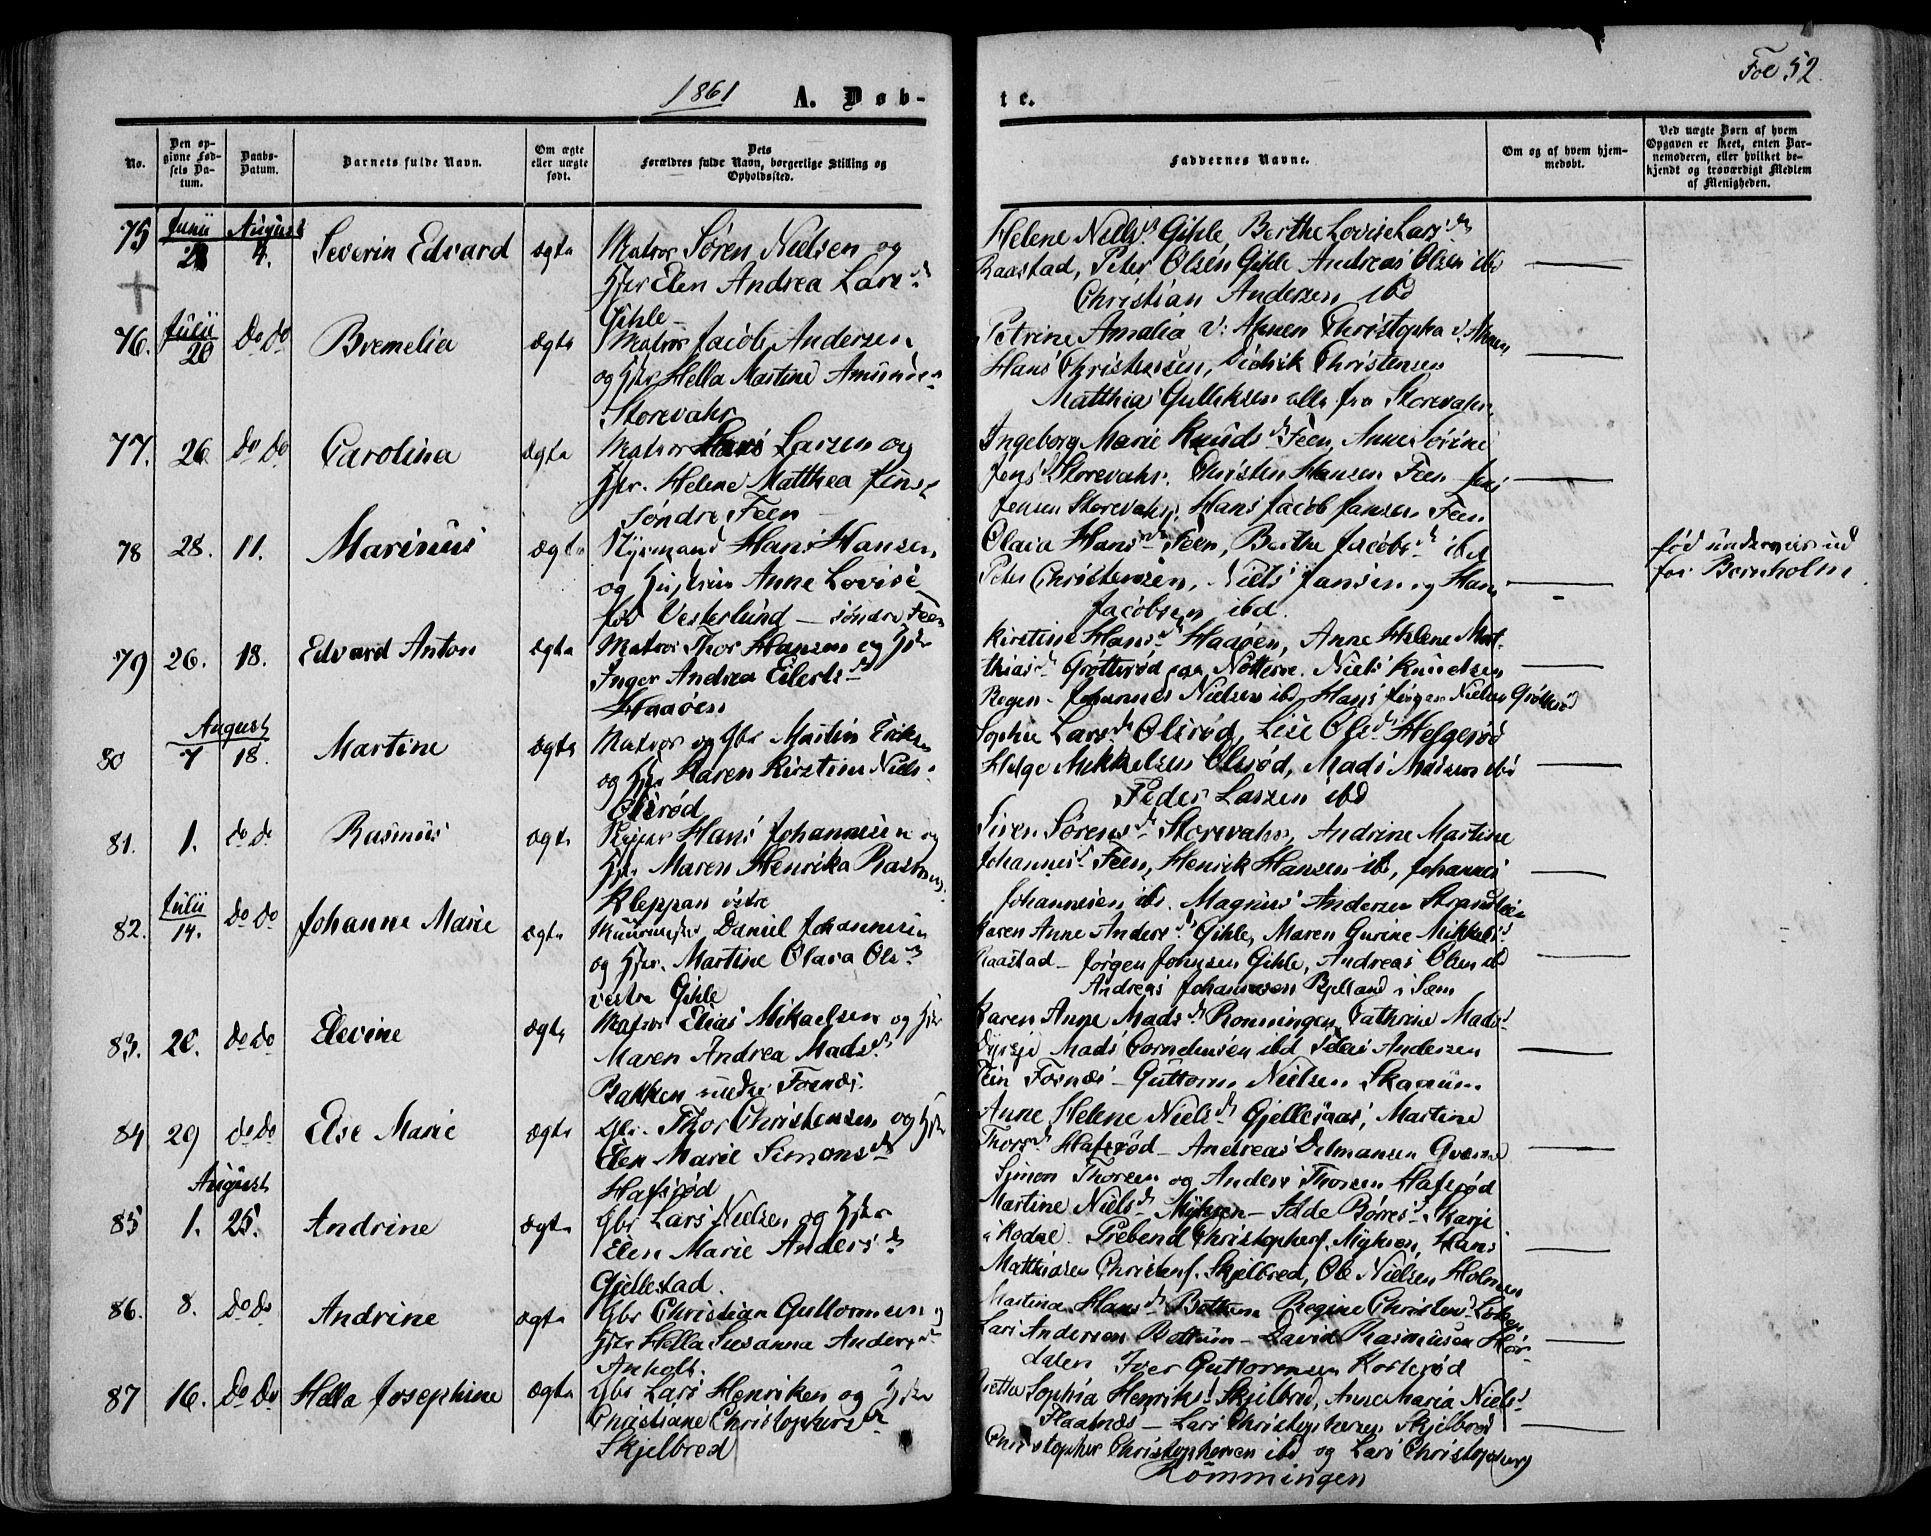 1861 A. Døb-
te.
Fol 52.
No.
Den op-
givne Fød-
sels Da-
tum.
Daabs-
Datum.
Barnets fulde Navn.
Om ægte
eller uægte
født.
Dets
Forældres fulde Navn, borgerlige Stilling og
Opholdssted.
Faddernes Navne.
Om og af hvem hjem-
medøbt.
Ved uægte Børn af hvem
Opgaven er skeet, enten Bar-
nemoderen, eller hvilket be-
kjendt og troværdigt Medlem
af Menigheden.
75 Junii August 4. Severin Edvard ægte Matros Søren Nielsen og
Hstr Elen Andrea Lars d.
Gihle
Helene Niels d. Gihle Berthe Lovise Lars d.
Raastad, Peter Olsen Gihle Andreas Olsen ibd
Christian Andersen ibd
76. Julii 20 Do Do Bremelia ægte Matros Jacob Andersen
og Hstr Hella Martine Amunds
Storevahr
Petrine Amalia v: Ahnen Christopha v. Ahnen
Hans Christensen, Didrik Christensen
Matthias Gulliksen alle fra Storevahr.
77. 26 Do Do Carolina ægte Matros Hans Larsen og
Hstr. Helene Matthea Jens
Søndre Feen
Ingeborg Marie Knuds d. Feen Anne Sørine
Jens d. Storevahr. Christen Hansen Feen Jens
Jensen Storevahr, Hans Jacob Jansen Feen
78 28. 11. Marinus ægte Styrmand Hans Hansen
og Hustru Anne Lovise
fød Vesterlund — søndre Feen
Olava Hans d. Feen, Berthe Jacobs d. ibd
Peter Christensen, Niels Jansen og Hans
Jacobsen ibd.
fød underveis ud
for Bornholm.
79 26. 18. Edvard Anton ægte Matros Thor Hansen og Hstr
Inger Andrea Eilerts d.
Haaøen
Kirstine Hans d. Haaøen, Anne Helene Mat-
thias d. Grøtterød paa Nøtterø. Niels Knudsen
Bogen - Johannes Nielsen ibd Hans Jørgen Nielsen Grøtterød
80 August 7 18. Martine ægte Matros og Gbr Martin Eriksen
og Hstr Karen Kirstine Niels
Olsrød
Sophie Lars d. Olsrød, Lise Ols d. Helgerød
Helge Mikkelsen Olsrød, Mads Madsen ibd
Peder Larsen ibd
81. 1. do do Rasmus ægte Skipper Hans Johannesen og
Hstr Maren Henrika Rasmus
Kleppan østre
Siren Sørens d. Storevahr, Andrine Martine
Johannes d. Feen, Henrik Hansen ibd, Johannes
Johannesen ibd. Magnus Andersen
82. Julii 14. Do Do Johanne Marie ægte Muurmester Daniel Johannesen
og Hstr. Martine Olava Ols d.
vestre Gihle
Karen Anne Anders d. Gihle, Maren Gurine Mikkels d.
Raastad - Jørgen Johnsen Gihle, Andreas Olsen ibd
Andreas Johannesen Bjelland i Sem
83. 20. Do Do Elevine ægte Matros Elias Mikaelsen og Hstr
Maren Andrea Mads d.
Bakken under Foenæs.
Karen Anne Mads d. Rønningen Cathrine Mads d.
Mads Corneliusen ibd Andersen
Foenæs - Guttorm Nielsen Skaanum
84 29 do do Else Marie ægte Gbr. Thor Christensen og Hstr
Elen Marie Simons d.
Hafsrød
Anne Helene Niels d. Gjellesaas, Martine
Thors d. Hafsrød - Andreas
Simon Thorsen og Anders Thorsen Hafsrød
85 August 1. 25. Andrine ægte Gbr Lars Nielsen og Hstr
Elen Marie Anders d.
Gjellestad.
Martine Niels d. Myhren - Børres d. Skarje
i Kodal. Prebend Christophers. Myhren, Hans
Mathiasen Skjelbred, Ole Nielsen Holmen
86. 8. Do Do Andrine ægte Gbr Christian Guttormsen og
Hstr Hella Susanna Anders d.
Anholt.
Martina Hans d. Bottum Regine Christens d.
Lars Andersen Bottum - David Rasmussen Hør-
dalen Iver Guttormsen Korterød
87 16. Do Do Hella Josephine ægte Gbr Lars Henriksen og Hstr
Christiane Christophers d.
Skjelbred
Sophia Henriks d. Skjelbred, Anne Maria Niels d.
Flaatnæs - Lars Christophersen Skjelbred
Christopher Christophersen ibd og Lars Christophersen
Rømmingen